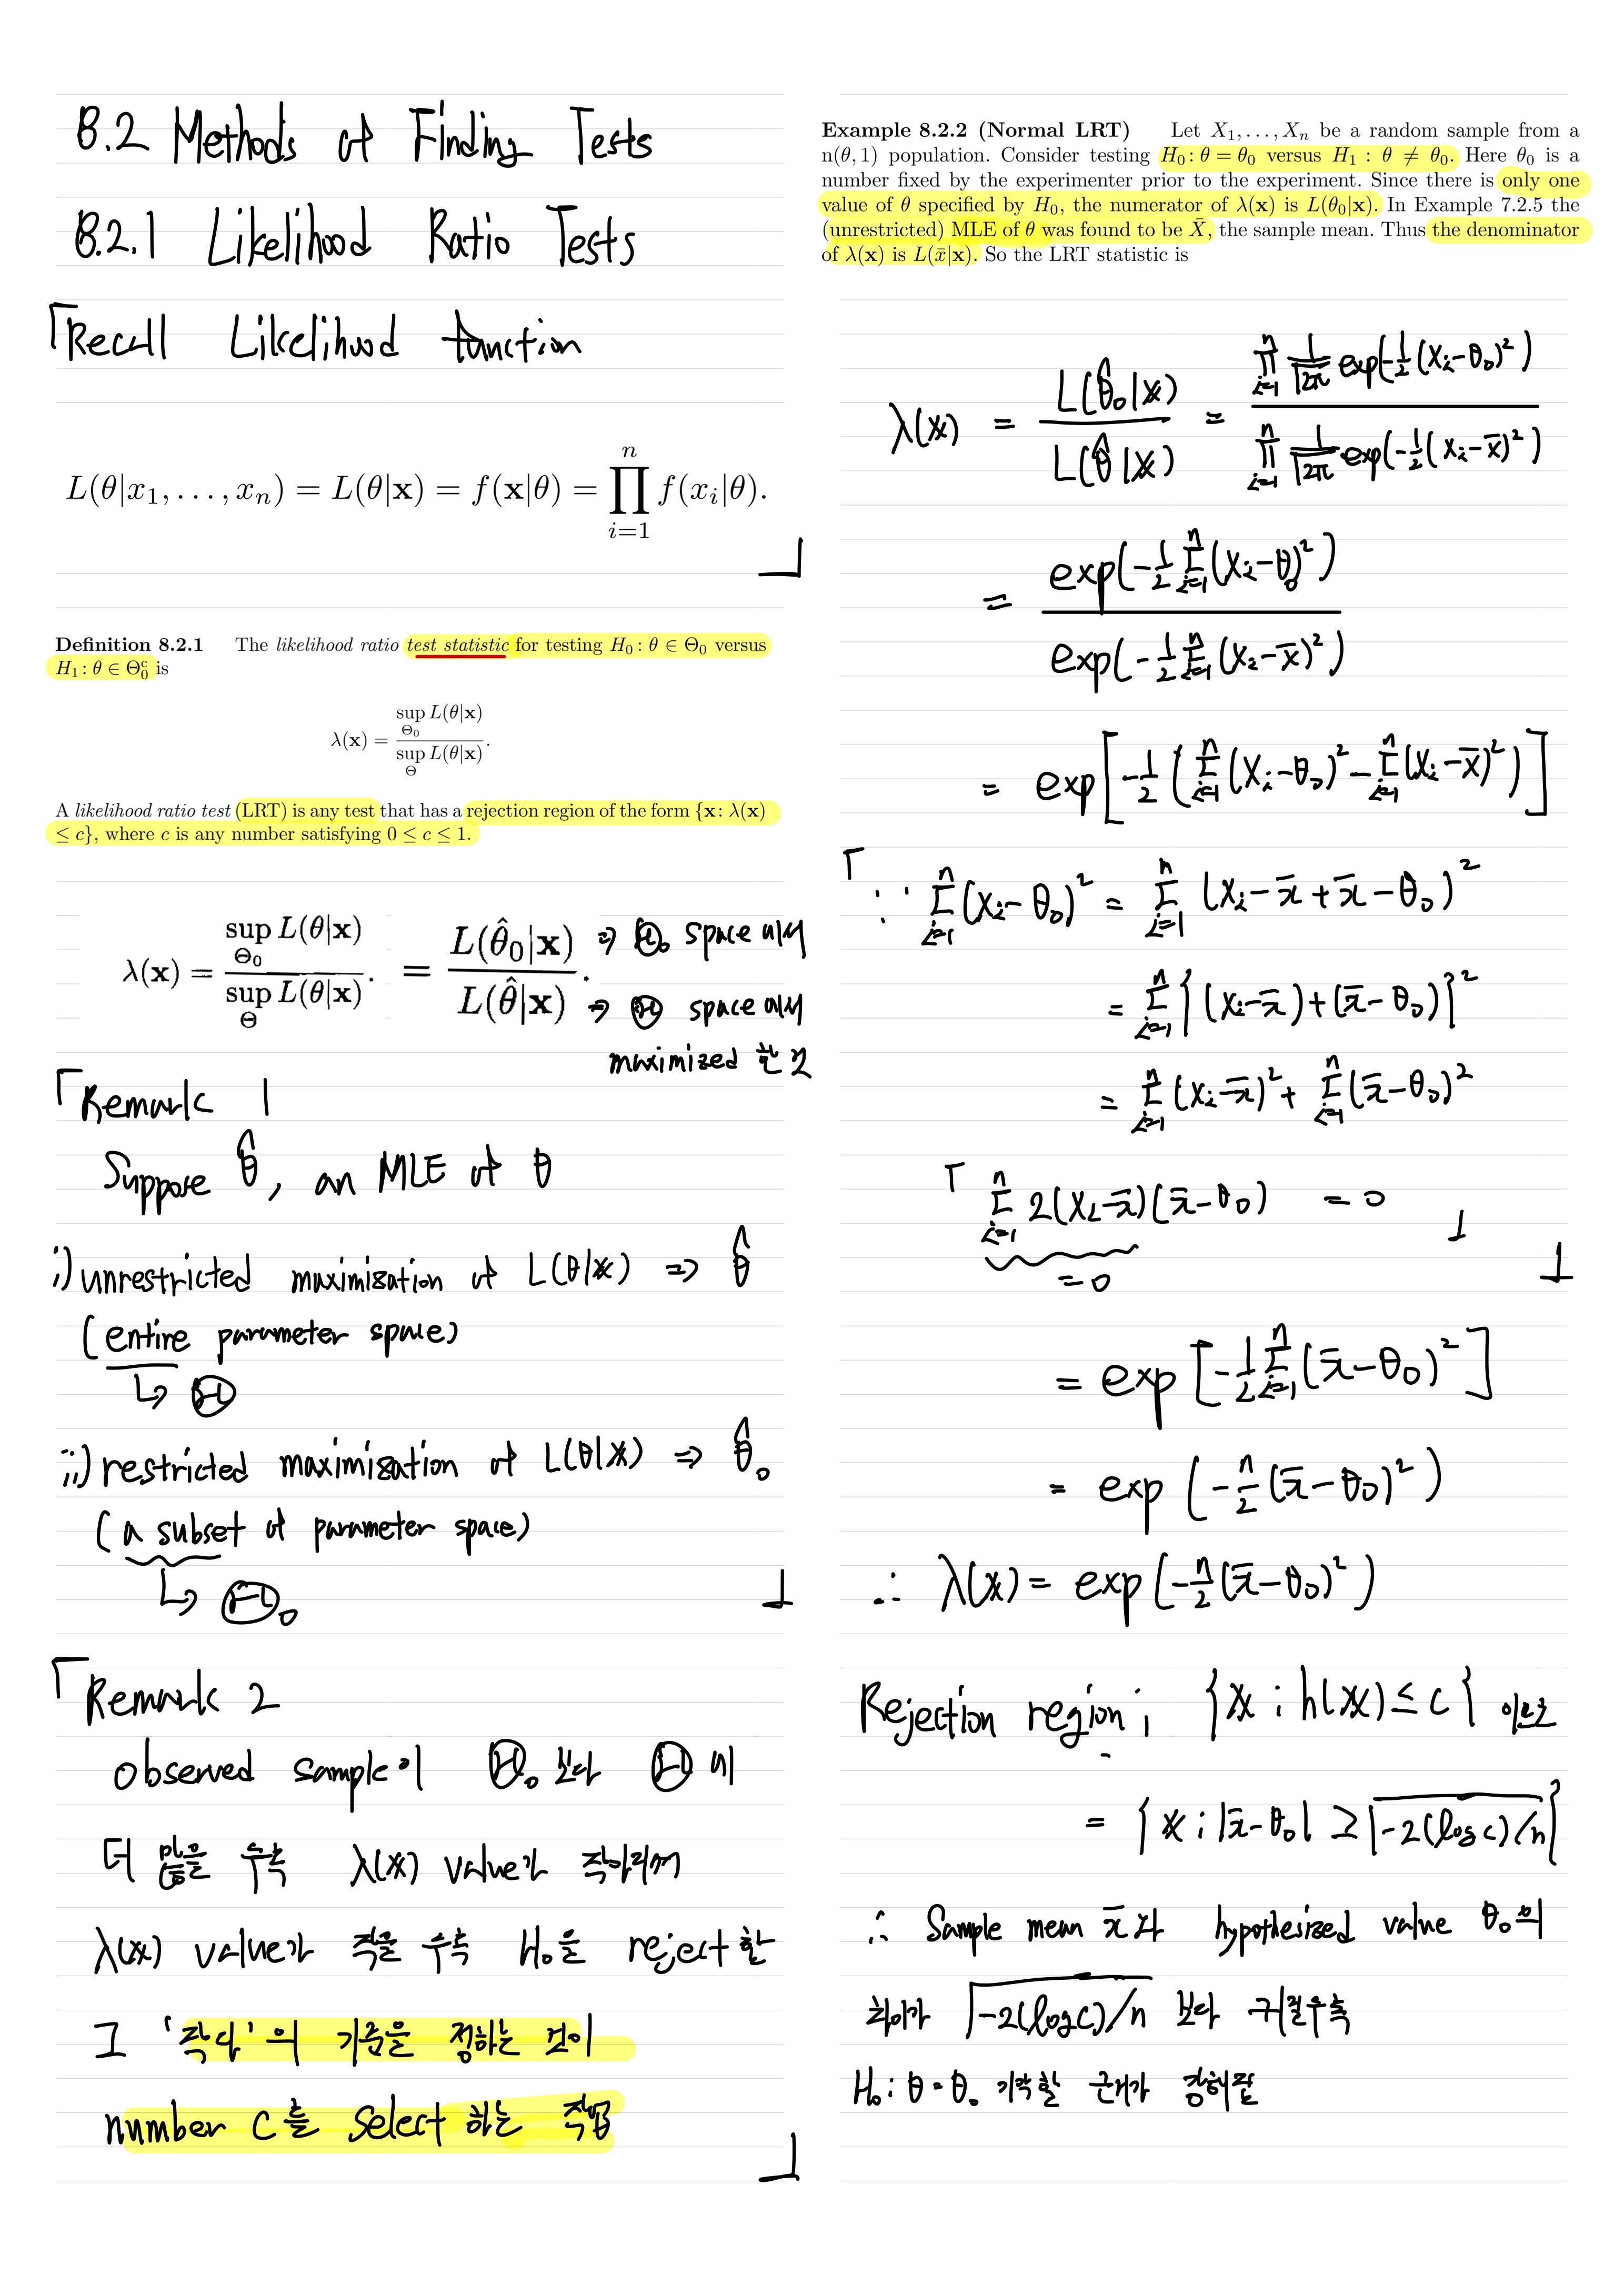 8.2 Methods of Finding Tests
8.2.1 Likelihood Ratio Tests
「Recall Likelihood function
L(θ|x₁, . . . , xₙ) = L(θ|𝐱) = f(𝐱|θ) = ∏ᵢ₌₁ⁿ f(xᵢ|θ).
」
Definition 8.2.1 The likelihood ratio test statistic for testing H₀ : θ ∈ Θ₀ versus
H₁ : θ ∈ Θ₀ᶜ is
λ(𝐱) = sup_Θ₀ L(θ|𝐱) / sup_Θ L(θ|𝐱).
A likelihood ratio test (LRT) is any test that has a rejection region of the form {𝐱 : λ(𝐱)
≤ c}, where c is any number satisfying 0 ≤ c ≤ 1.
λ(𝐱) = sup_Θ₀ L(θ|𝐱) / sup_Θ L(θ|𝐱). = L(θ̂₀|𝐱) / L(θ̂|𝐱).
⇒ Θ₀ space에서
⇒ Θ space에서
maximized 한 것
「Remark 1
Suppose θ̂, an MLE of θ
i) unrestricted maximization of L(θ|𝐱) ⇒ θ̂
(entire parameter space)
↳ Θ
ii) restricted maximization of L(θ|𝐱) ⇒ θ̂₀
(a subset of parameter space)
↳ Θ₀
」
「Remark 2
observed sample이 Θ₀ 보다 Θ 에
더 많을 수록 λ(𝐱) value가 작아져서
λ(𝐱) value가 작을 수록 H₀을 reject 함
그 '작다'의 기준을 정하는 것이
number c를 select 하는 작업
」
Example 8.2.2 (Normal LRT) Let X₁, . . . , Xₙ be a random sample from a
n(θ, 1) population. Consider testing H₀ : θ = θ₀ versus H₁ : θ ≠ θ₀. Here θ₀ is a
number fixed by the experimenter prior to the experiment. Since there is only one
value of θ specified by H₀, the numerator of λ(𝐱) is L(θ₀|𝐱). In Example 7.2.5 the
(unrestricted) MLE of θ was found to be X̄, the sample mean. Thus the denominator
of λ(𝐱) is L(x̄|𝐱). So the LRT statistic is
λ(𝐱) = L(θ̂₀|𝐱) / L(θ̂|𝐱) = ∏ᵢ₌₁ⁿ 1/√2π exp(-½(xᵢ-θ₀)²) / ∏ᵢ₌₁ⁿ 1/√2π exp(-½(xᵢ-x̄)²)
= exp(-½ Σᵢ₌₁ⁿ(xᵢ-θ₀)²) / exp(-½ Σᵢ₌₁ⁿ(xᵢ-x̄)²)
= exp[-½(Σᵢ₌₁ⁿ(xᵢ-θ₀)² - Σᵢ₌₁ⁿ(xᵢ-x̄)²)]
「∵ Σᵢ₌₁ⁿ(xᵢ-θ₀)² = Σᵢ₌₁ⁿ (xᵢ-x̄+x̄-θ₀)²
= Σᵢ₌₁ⁿ {(xᵢ-x̄)+(x̄-θ₀)}²
= Σᵢ₌₁ⁿ (xᵢ-x̄)² + Σᵢ₌₁ⁿ (x̄-θ₀)²
「Σᵢ₌₁ⁿ 2(xᵢ-x̄)(x̄-θ₀) = 0 」
= 0 」
= exp[-½ Σᵢ₌₁ⁿ (x̄-θ₀)²]
= exp(-n/2 (x̄-θ₀)²)
∴ λ(𝐱) = exp(-n/2 (x̄-θ₀)²)
Rejection region ; {𝐱 ; h(𝐱) ≤ c} 이므로
= {𝐱 ; |x̄-θ₀| ≥ √-2(log c)/n}
∴ Sample mean x̄ 와 hypothesized value θ₀의
차이가 √-2(log c)/n 보다 커질수록
H₀ : θ = θ₀ 기각할 근거가 강해짐